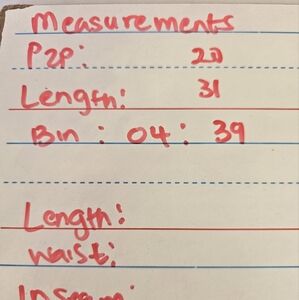 Measurements
P2P: 20
Length: 31
Bin : 04 : 39
Length:
Waist:
Inseam: